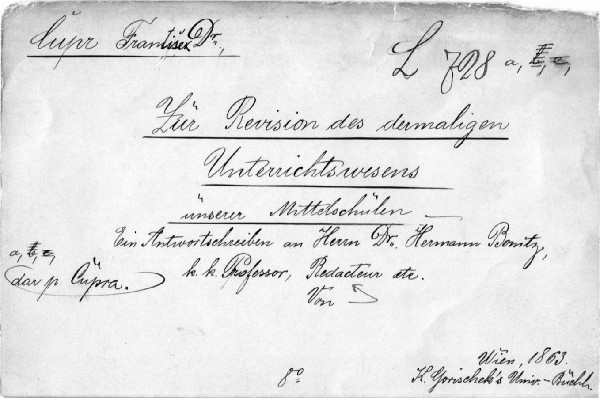 Čupr František Dr.,
L 728 a, b, c,
Zür Revision des dermaligen
Unterrichtswesens
ünserer Mittelschülen —
Ein Antwortschreiben an Herrn Dr. Hermann Bonitz,
a, b, c,
k. k. Professor, Redacteur etc.
dar p Čupra.
Von
Wien, 1863.
8º
K. Gorischek's Univ.-Büchh.